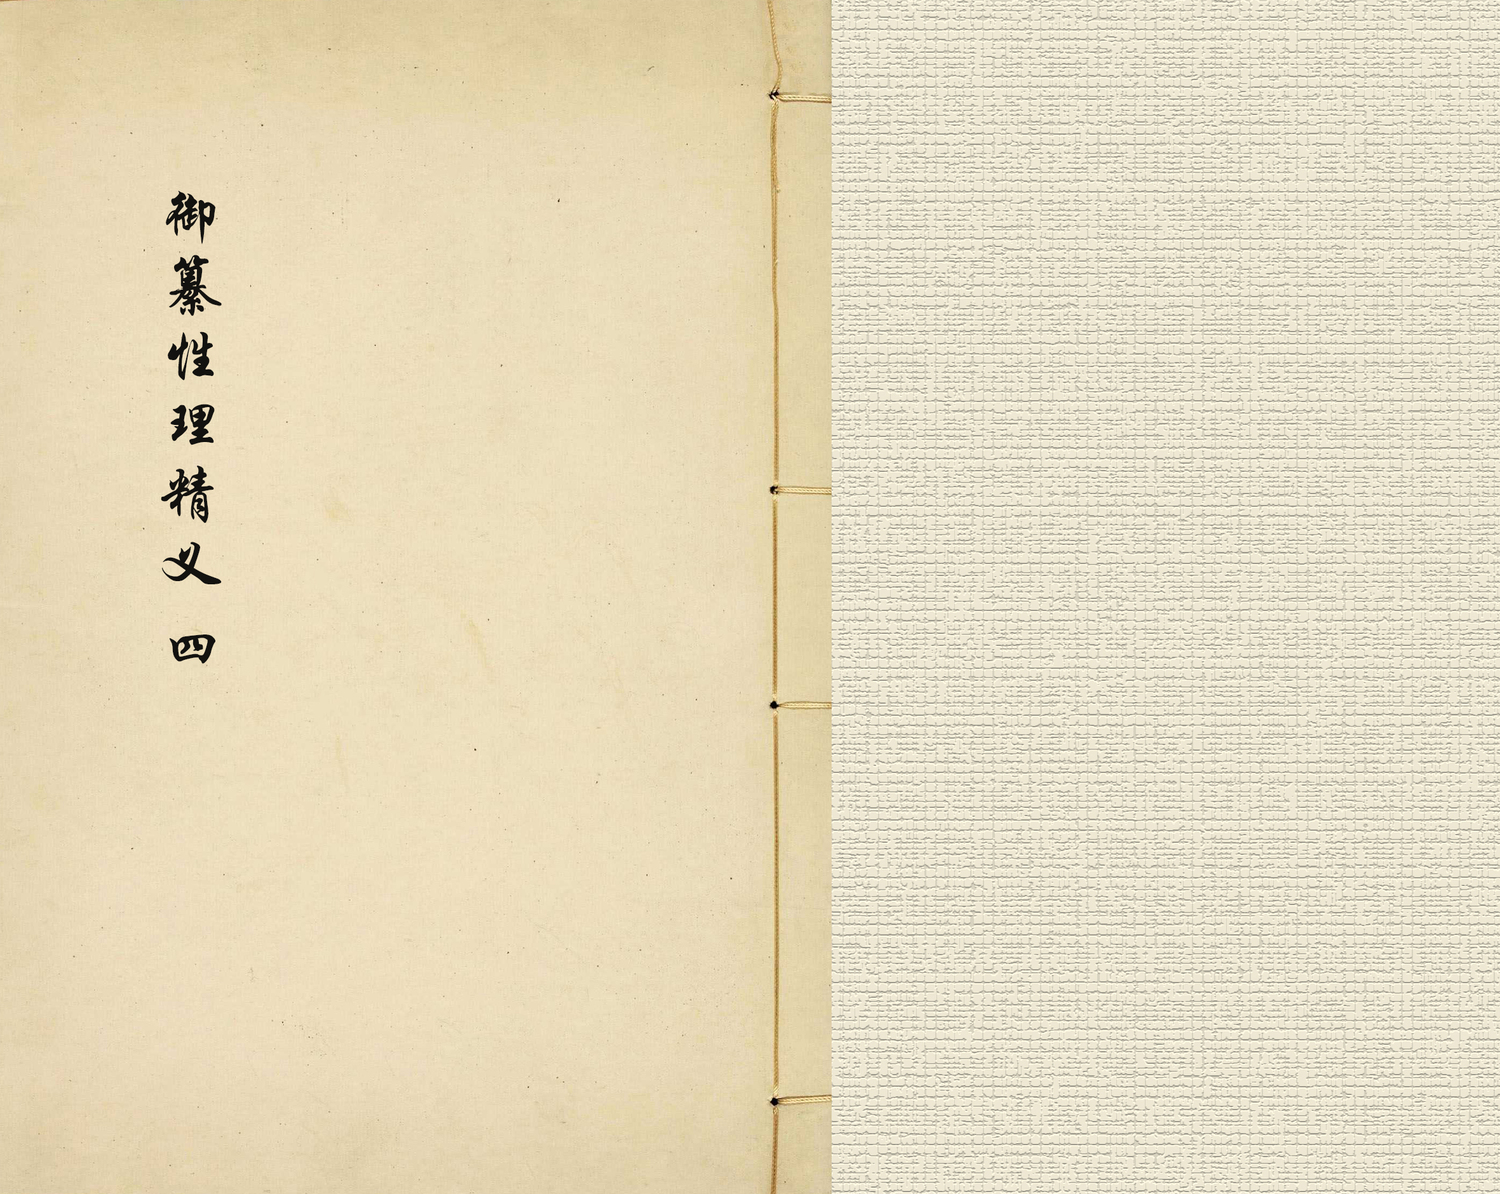 御纂性理精义 四